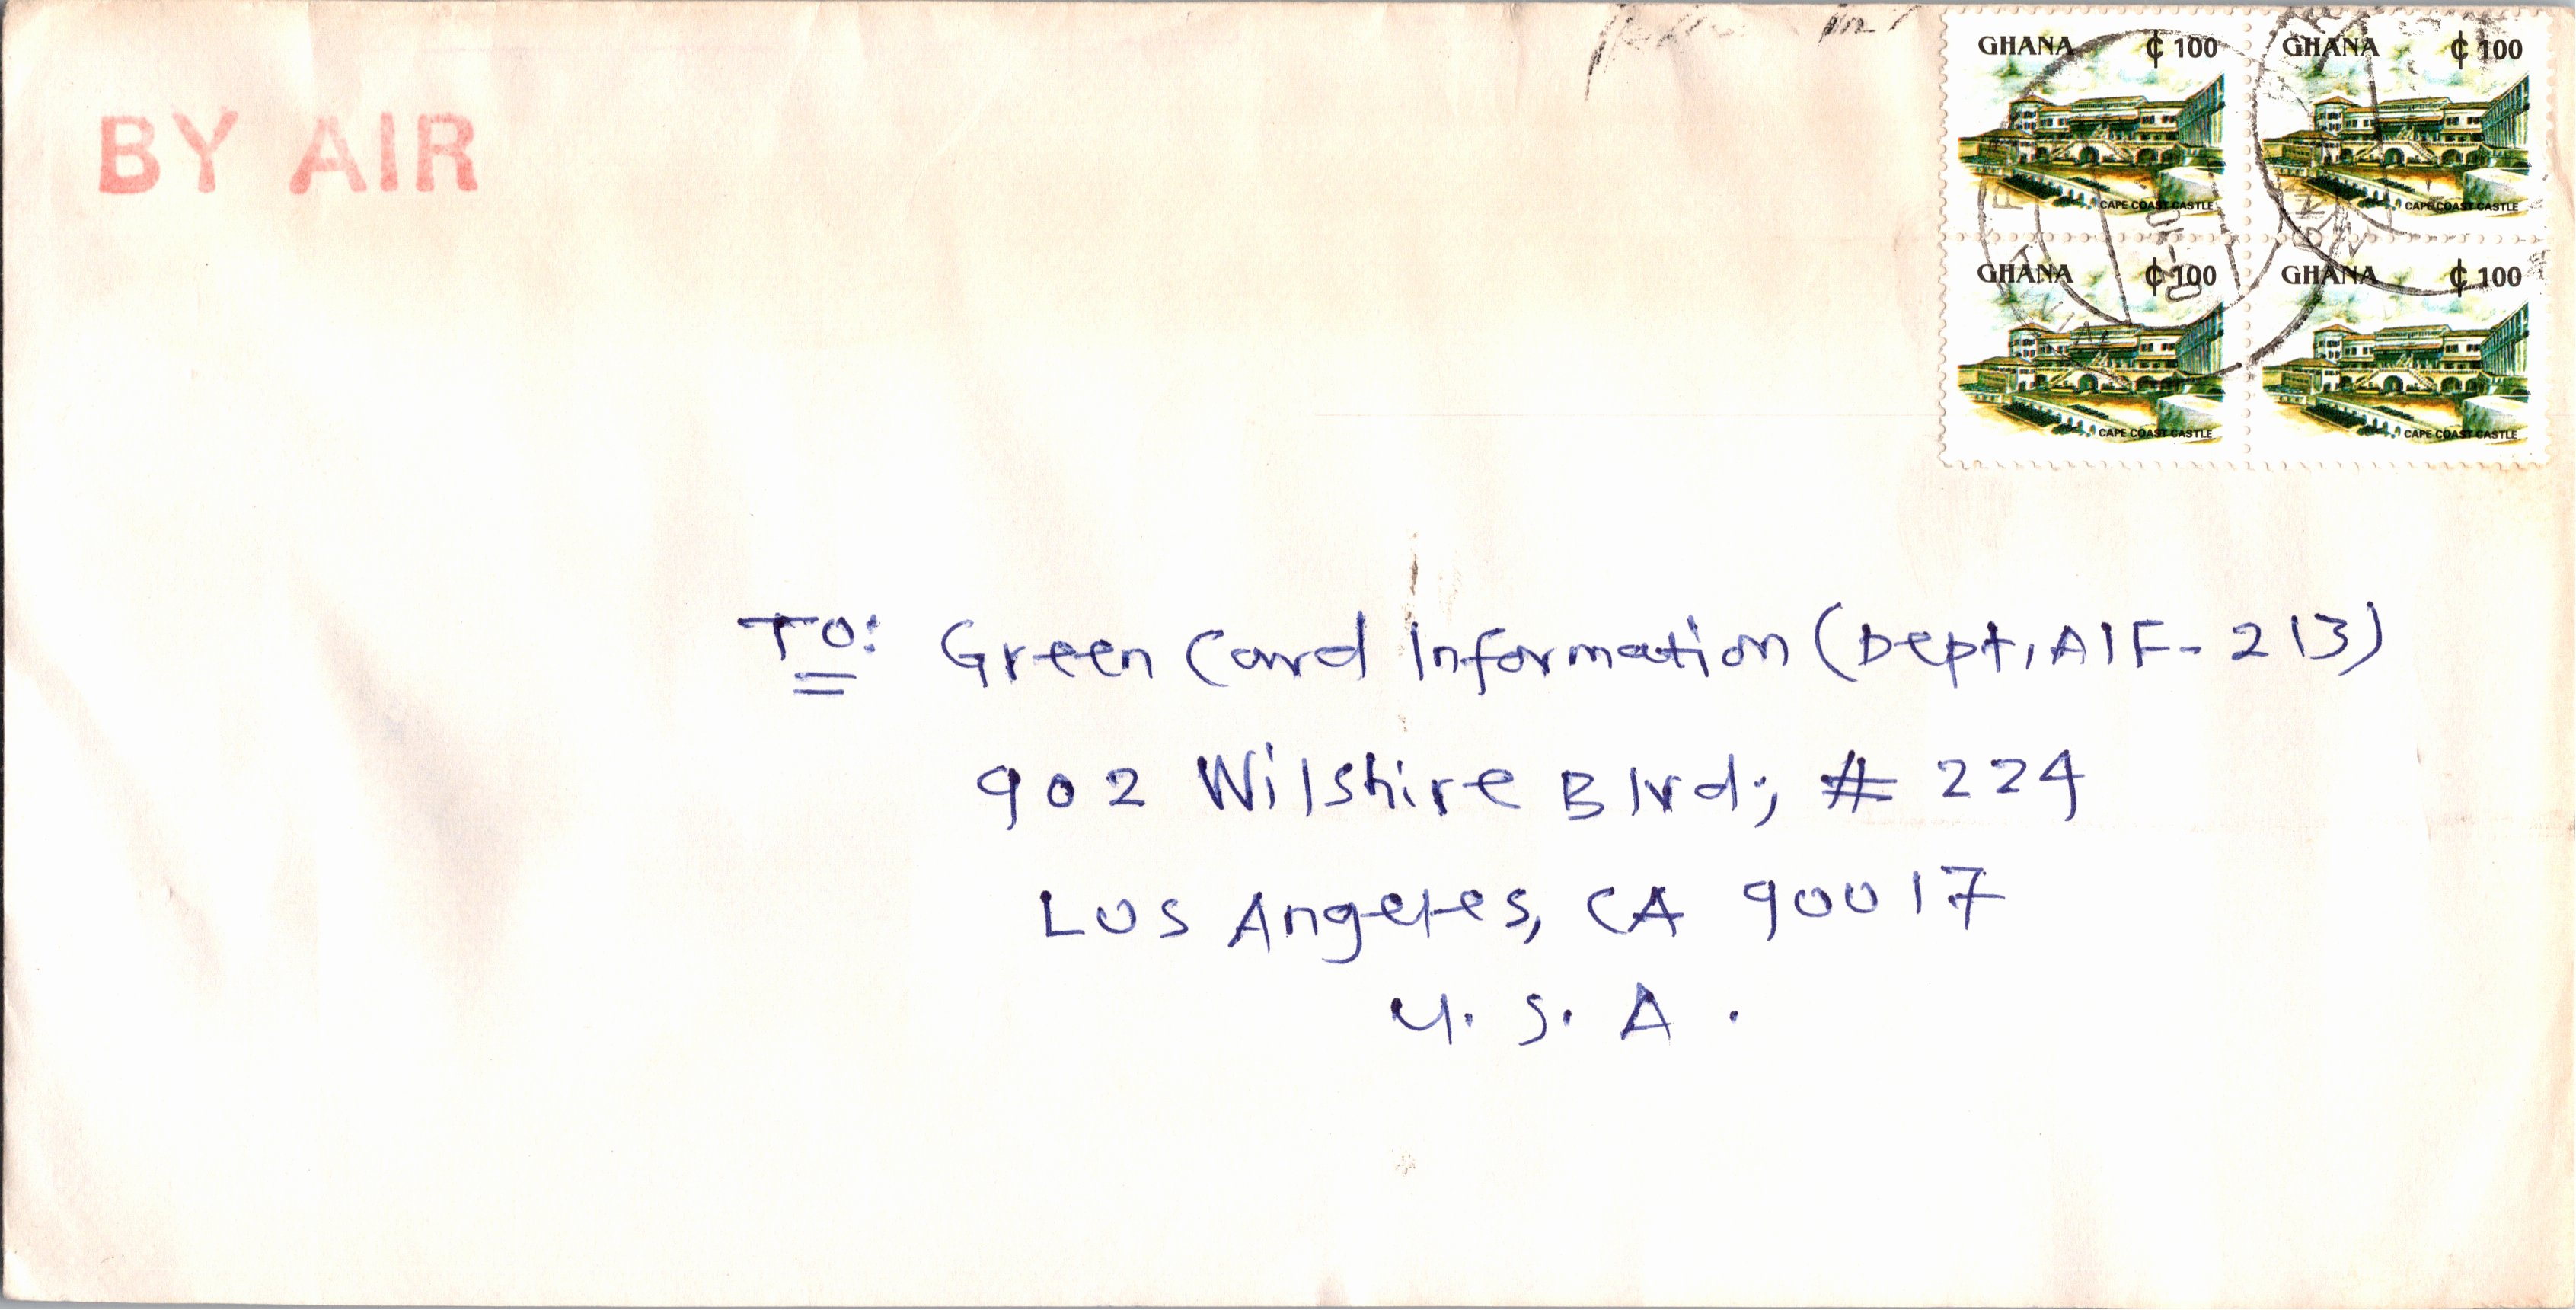 BY AIR
GHANA ₵ 100
CAPE COAST CASTLE
GHANA ₵ 100
CAPE COAST CASTLE
GHANA ₵ 100
CAPE COAST CASTLE
GHANA ₵ 100
CAPE COAST CASTLE
TO: Green Card Information (Dept, AIF-213)
902 Wilshire Blvd; # 224
Los Angeles, CA 90017
U. S. A.